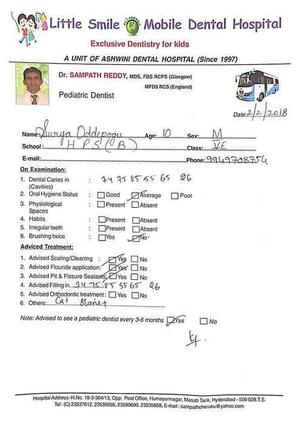 Little Smile Mobile Dental Hospital
Exclusive Dentistry for kids
A UNIT OF ASHWINI DENTAL HOSPITAL (Since 1997)
Dr. SAMPATH REDDY, MDS, FDS RCPS (Glasgow)
MFDS RCS (England)
Pediatric Dentist
Date: 2/2/2018
Name: Surya Oddepogu Age: 10 Sex: M
School: H P S (B) Class: VE
E-mail: Phone: 9949708754
On Examination:
1. Dental Caries in : 74 75 85 55 65 26
(Cavities)
2. Oral Hygiene Status : Good Average Poor
3. Physiological : Present Absent
Spaces
4. Habits : Present Absent
5. Irregular teeth : Present Absent
6. Brushing twice : Yes No
Adviced Treatment:
1. Advised Scaling/Cleaning : Yes No
2. Advised Flouride application: Yes No
3. Advised Pit & Fissure Sealants: Yes No
4. Advised Filling in 74 75 85 55 65 26
5. Advised Orthodontic treatment: Yes No
6. Others:
Note: Advised to see a pediatric dentist every 3-6 months Yes No
Hospital Address: H.No. 18-3-304/13, Opp: Post Office, Humayunnagar, Masab Tank, Hyderabad - 500 028 T.S.
Tel: (C) 23537612, 23535656, 23590690, 23535858, E-mail: sampathcheruku@yahoo.com